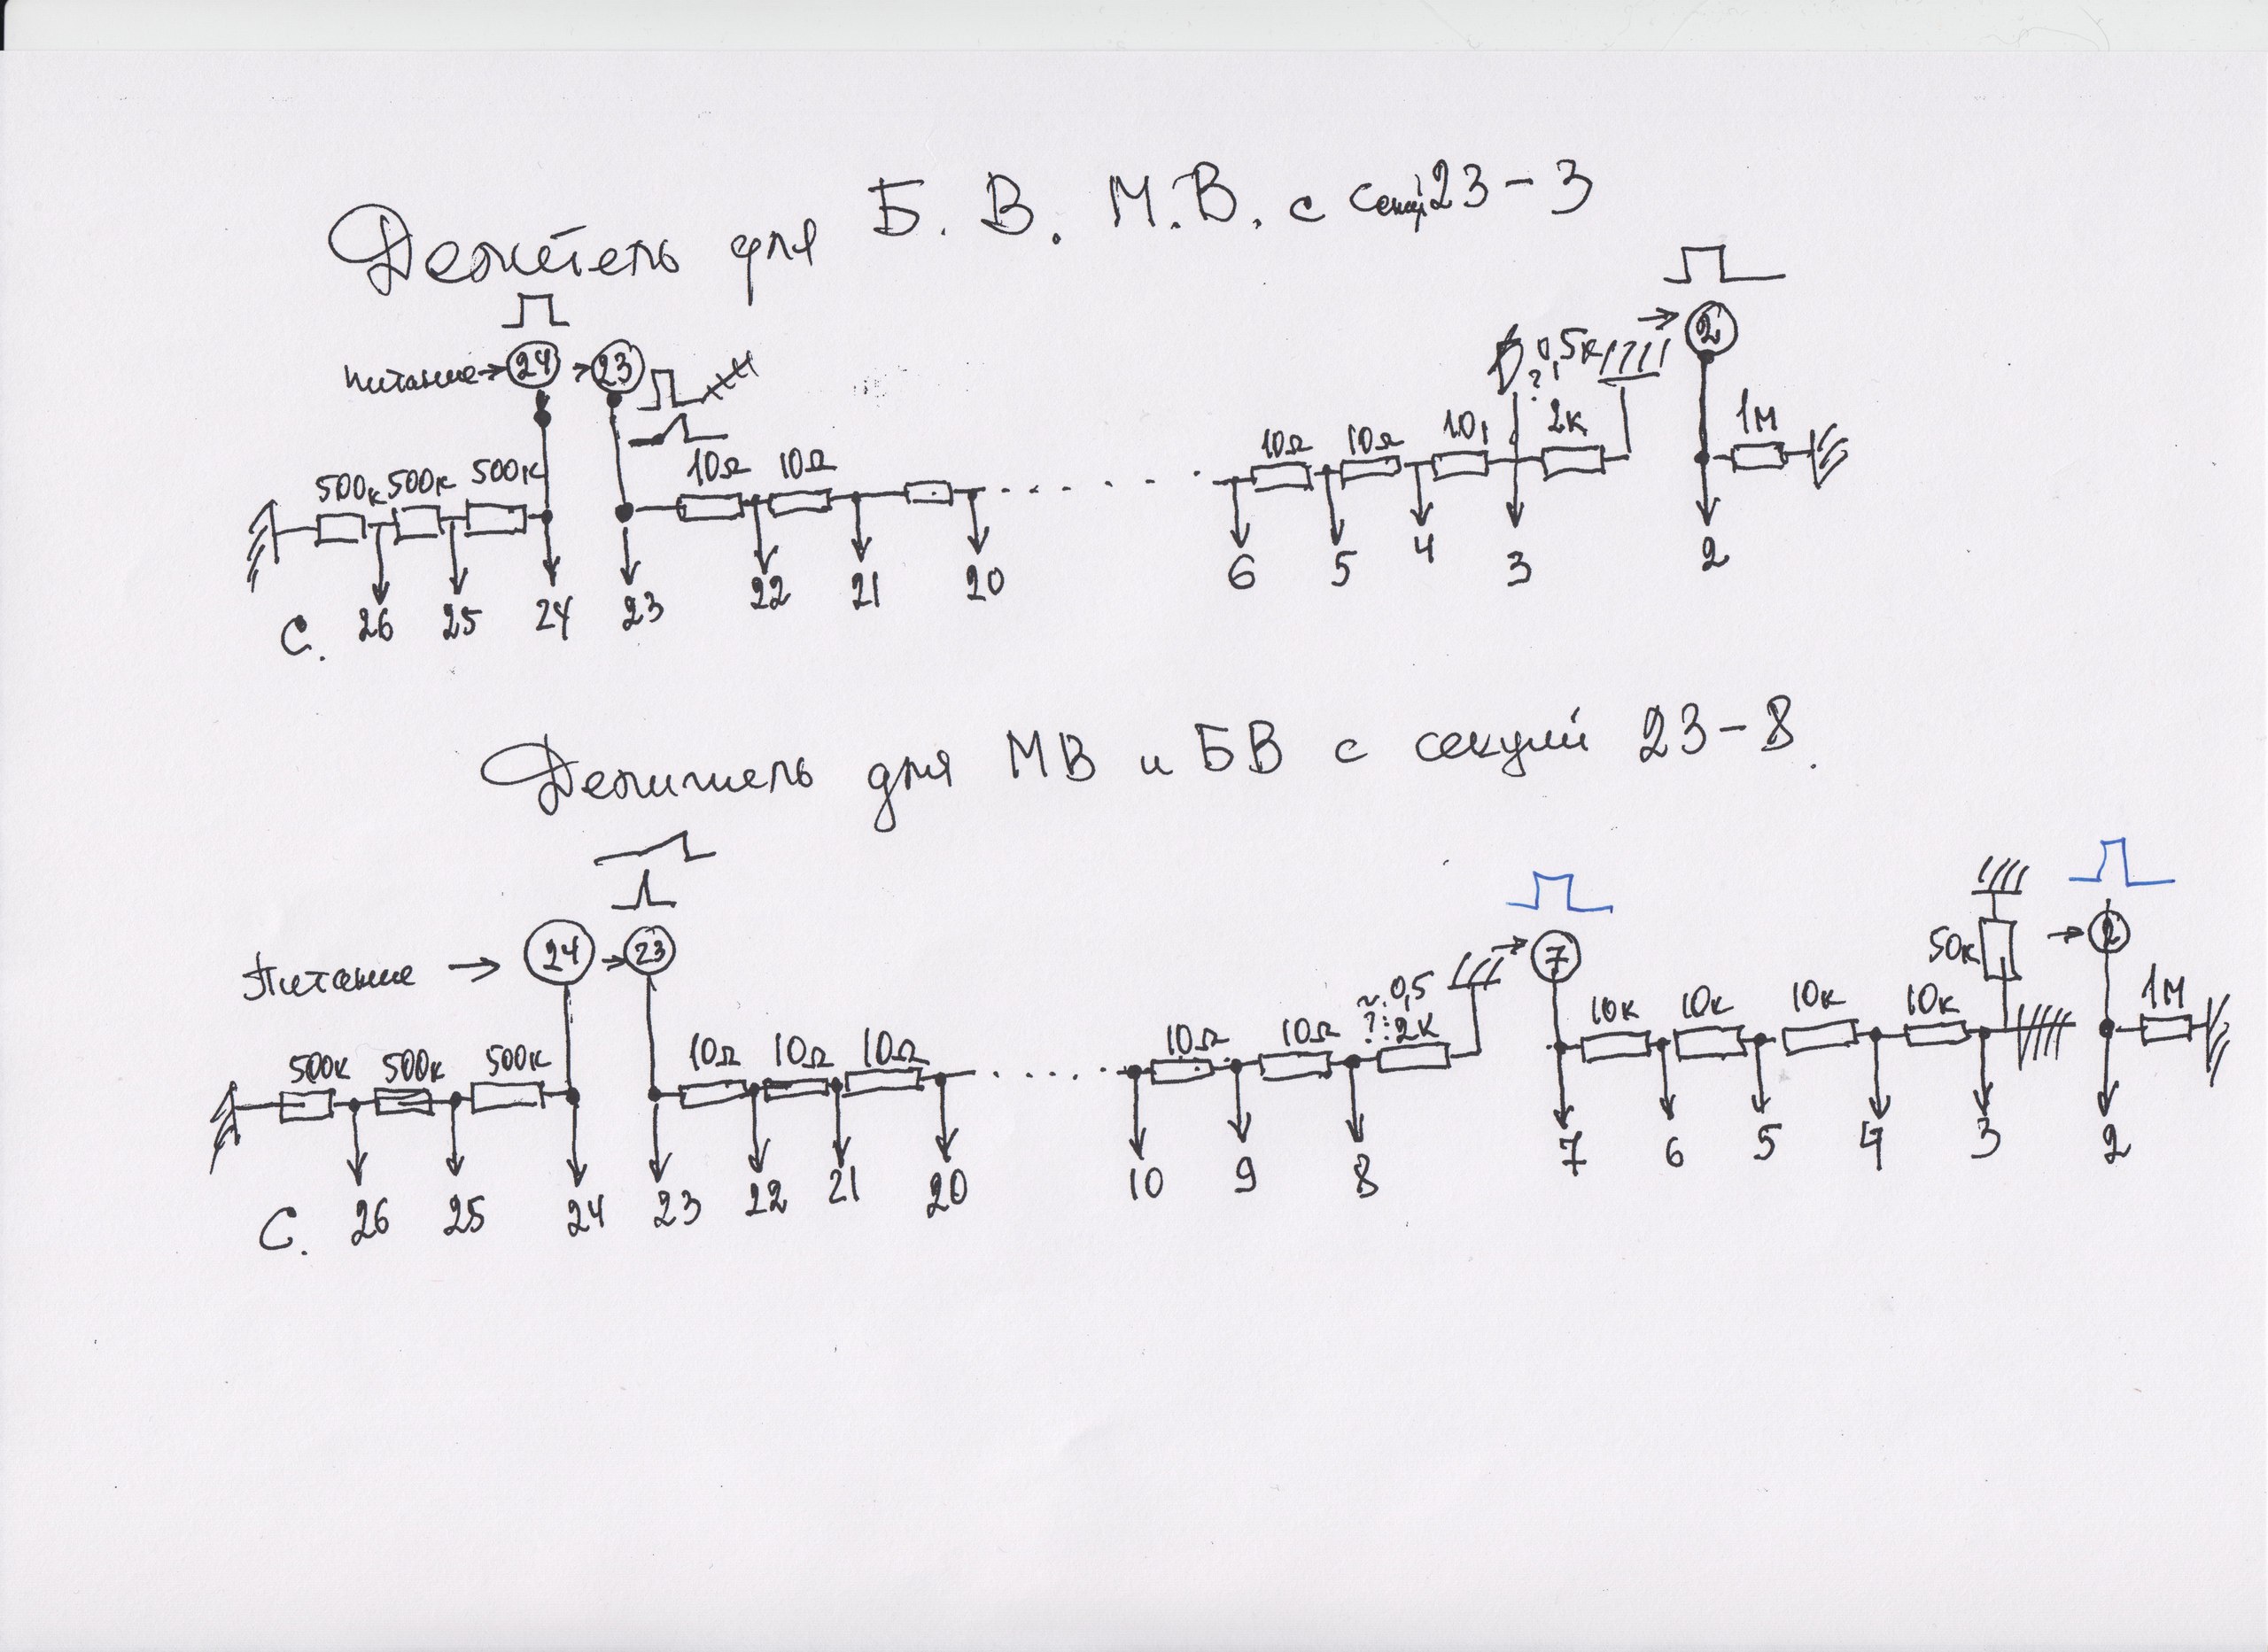 Делитель для Б. В. М.В. с секц 23-3
питание → 24 → 23
0,5к
?
2
500к 500к 500к 10Ω 10Ω 10Ω 10Ω 10, 2к 1М
С. 26 25 24 23 22 21 20 6 5 4 3 2
Делитель для МВ и БВ с секций 23-8.
Питание → 24 → 23 → 7 → 2
50к
~0,5
500к 500к 500к 10Ω 10Ω 10Ω 10Ω 10Ω ?: 2к 10к 10к 10к 10к 1М
С. 26 25 24 23 22 21 20 10 9 8 7 6 5 4 3 2